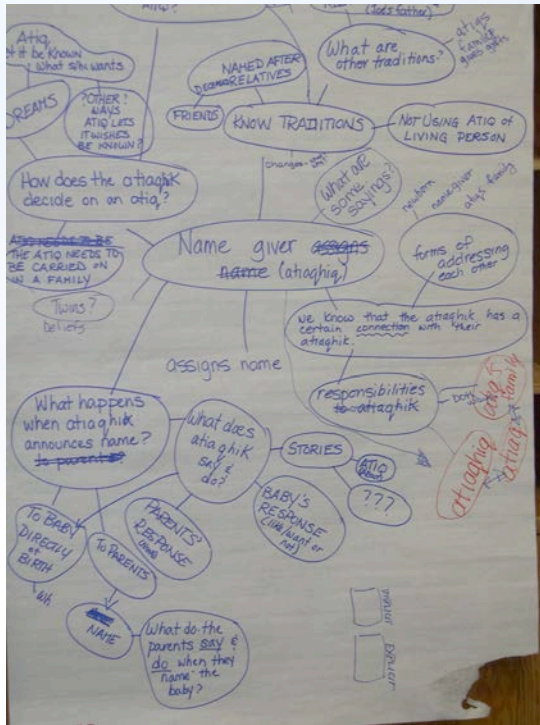 ATIQ?
(does father)
Atiq
let it be known
what s/he wants
What are
other traditions?
atiqs
family
gives gifts
NAMED AFTER
DECEASED RELATIVES
FRIENDS
KNOW TRADITIONS
NOT USING ATIQ OF
LIVING PERSON
DREAMS
?OTHER?
WAYS
ATIQ LETS
IT WISHES
BE KNOWN?
How does the atiaghik
decide on an atiq?
What are
some
sayings?
newborn
name giver
atiqs family
forms of
addressing
each other
ATIQ NEEDS TO BE
THE ATIQ NEEDS TO
BE CARRIED ON
IN A FAMILY
Twins?
beliefs
Name giver assigns
name (atiaghiq)
we know that the atiaghik has a
certain connection with their
atiaghik.
assigns name
responsibilities
to atiaghik
atiq
family
atiaghiq
atiaq
What happens
when atiaghik
announces name?
to parents?
What does
atiaghik
say &
do?
STORIES
ATIQ
???
BABY'S
RESPONSE
(like/want or
not)
PARENTS'
RESPONSE
TO BABY
DIRECTLY
at
BIRTH
TO PARENTS
Wh
NAME
What do the
parents say &
do when they
name the
baby?